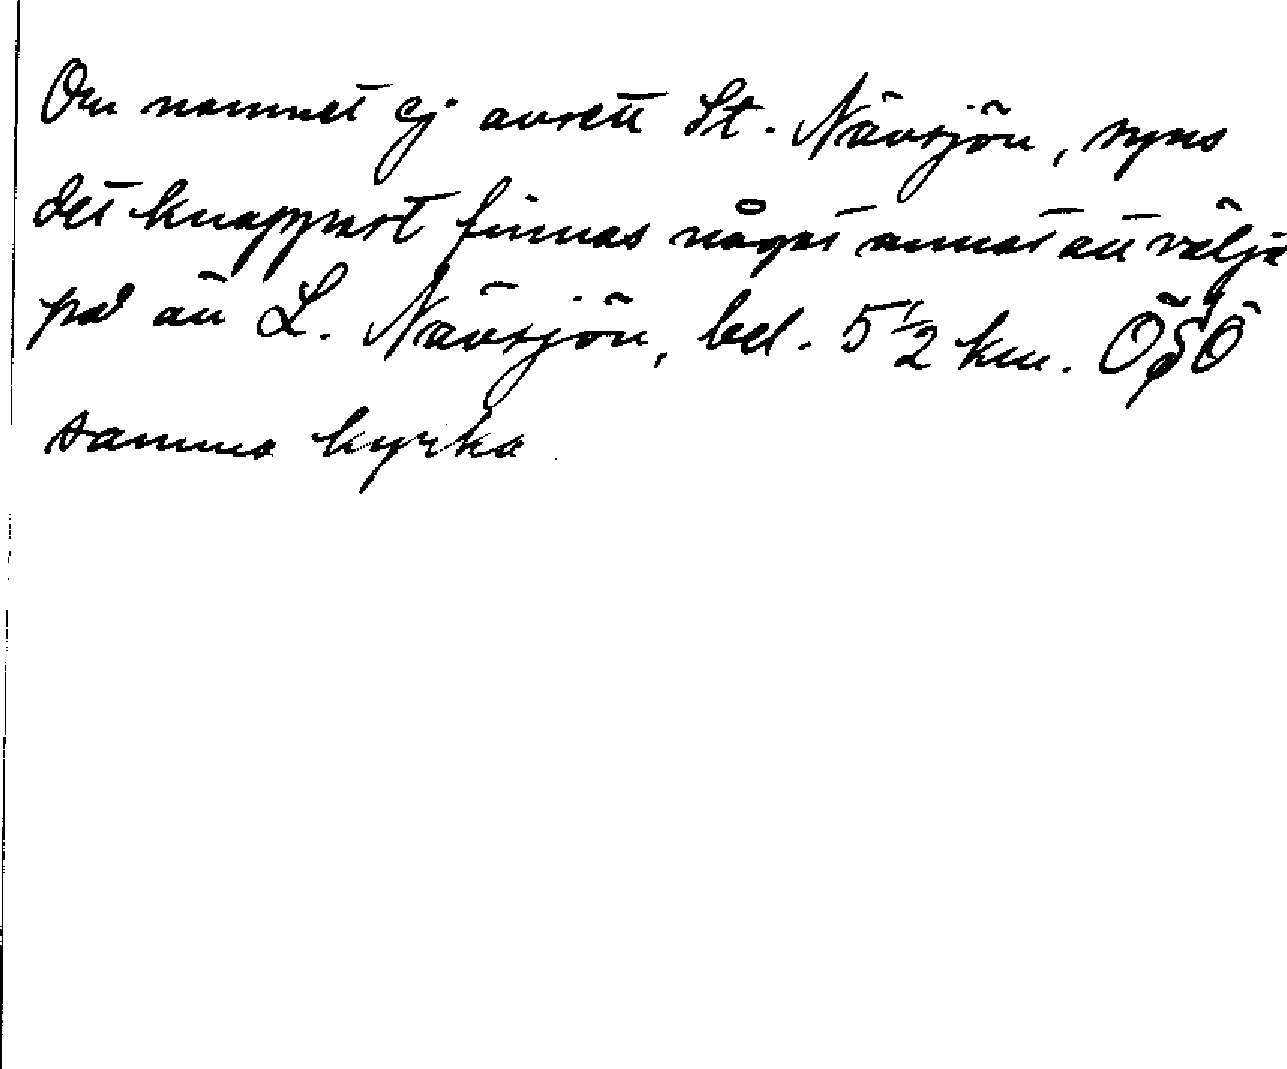 Om namnet ej avsett St. Nävsjön, synes
det knappast finnas något annat att välja
på än L. Nävsjön, bel. 5 1/2 km. ÖSÖ
samma kyrka